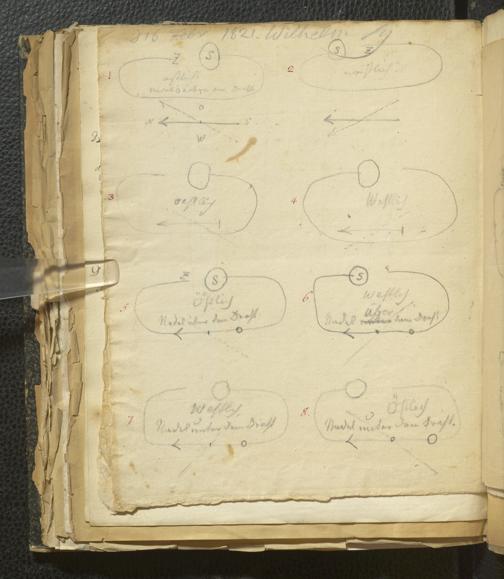 Febr. 1821. Wilhelm
Z S
1
östlich
Nadel über dem Draht
O
N S
W
S Z
2
westlich
3
östlich
4
Westlich
Zn S
5
Östlich
Nadel über dem Draht.
S
6
Westlich
über
Nadel dem Draht.
7
Westlich
Nadel unter dem Draht
8.
Östlich
Nadel unter dem Draht.